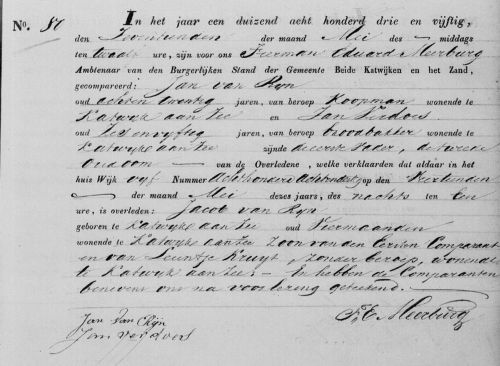 No. 87 In het jaar een duizend acht honderd drie en vijftig,
den Zeventienden der maand Mei des middags
ten twaalf ure, zijn voor ons Feerman Eduard Meerburg
Ambtenaar van den Burgerlijken Stand der Gemeente Beide Katwijken en het Zand,
gecompareerd: Jan van Rijn
oud achten twintig jaren, van beroep Koopman wonende te
Katwijk aan Zee en Jan Verdoes
oud Zes en vyftig jaren, van beroep broodbakker wonende te
Katwyk aan Zee zijnde de eerste Vader, de tweede
Oudoom van de Overledene, welke verklaarden dat aldaar in het
huis Wijk vyf Nummer op den
der maand Mei dezes jaars, des nachts ten Een
ure, is overleden: Jacob van Ryn
geboren te Katwyk aan Zee oud Vier maanden
wonende te Katwyk aan Zee Zoon van den Eersten Comparant
en van Leuntje Kruyt, Zonder beroep, wonende
te Katwyk aan Zee. En hebben de Comparanten
benevens ons na voorlezing geteekend.
Jan van Rijn
Jan verdoes
F. E. Meerburg